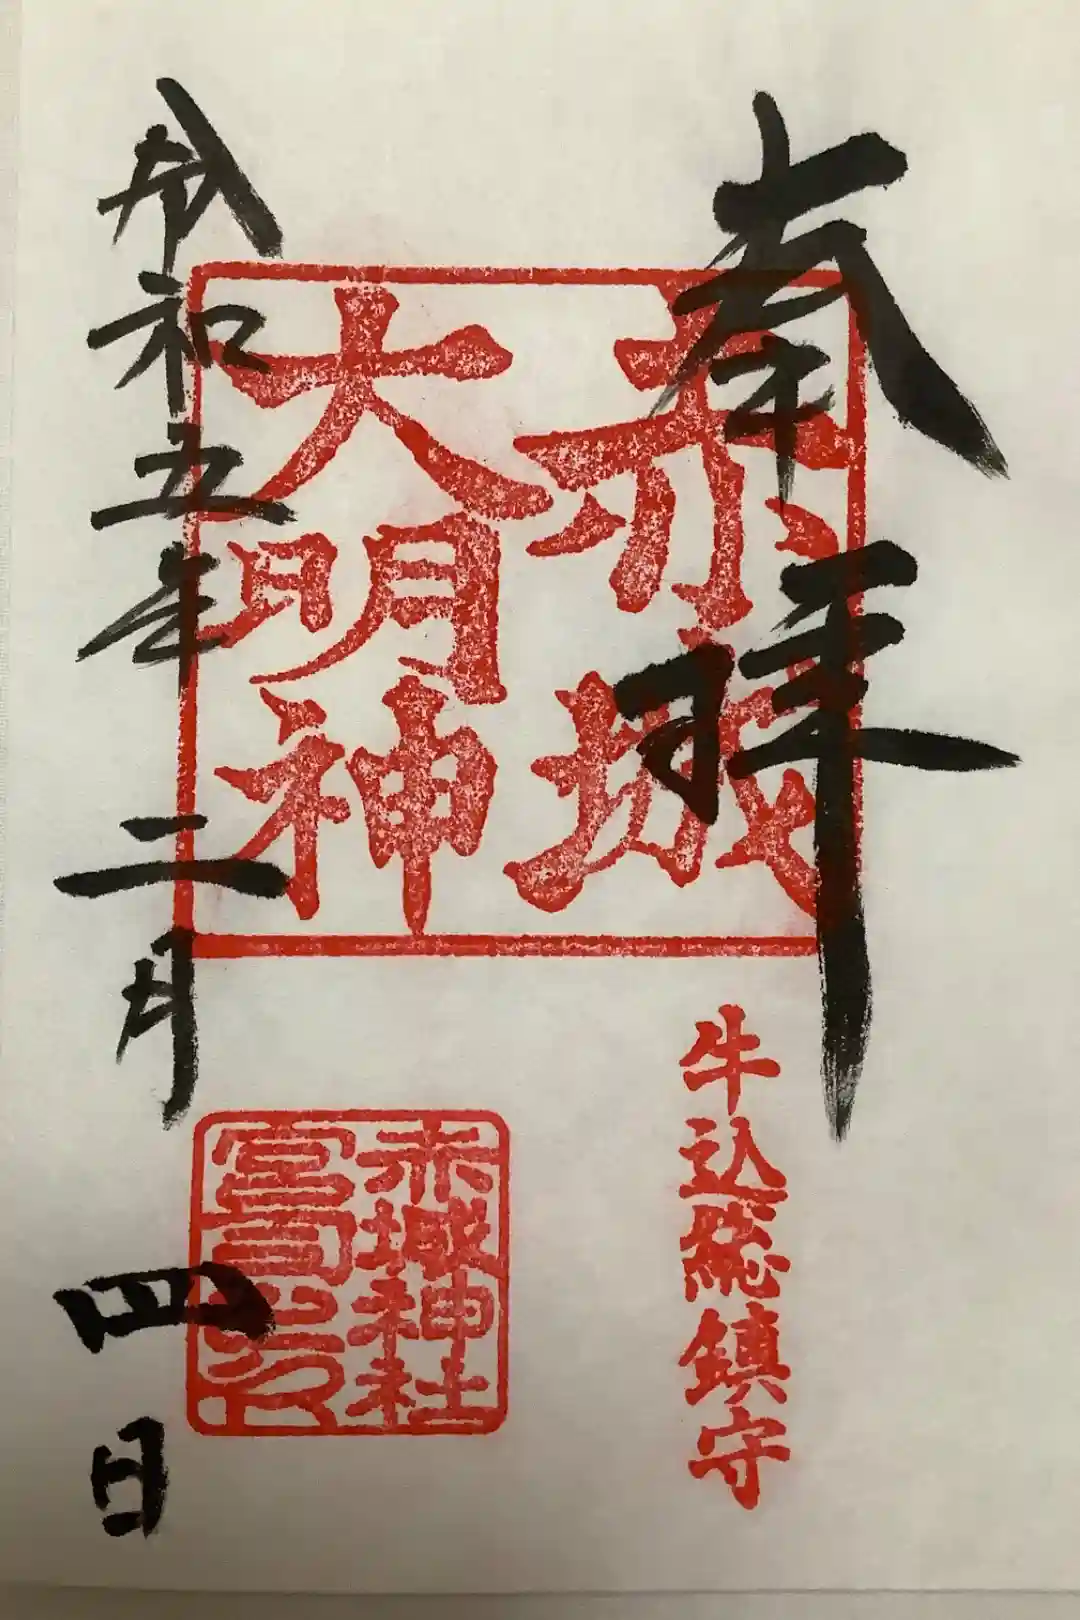 奉拝
赤城
大明神
牛込総鎮守
赤城神社
宮司之印
令和五年二月四日